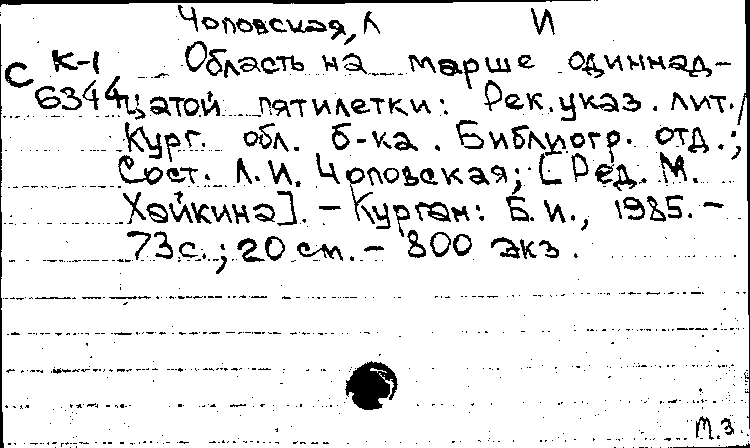 Чоповская, Л И
С К-1 Область на марше одиннад-
6344 цатой пятилетки: Рек. указ. лит. /
Кург. обл. б-ка. Библиогр. отд.;
Сост. Л. И. Чоповская; [Ред. М.
Хайкина]. – Курган: Б. И., 1985. –
73 с.; 20 см. – 800 экз.
М.З.